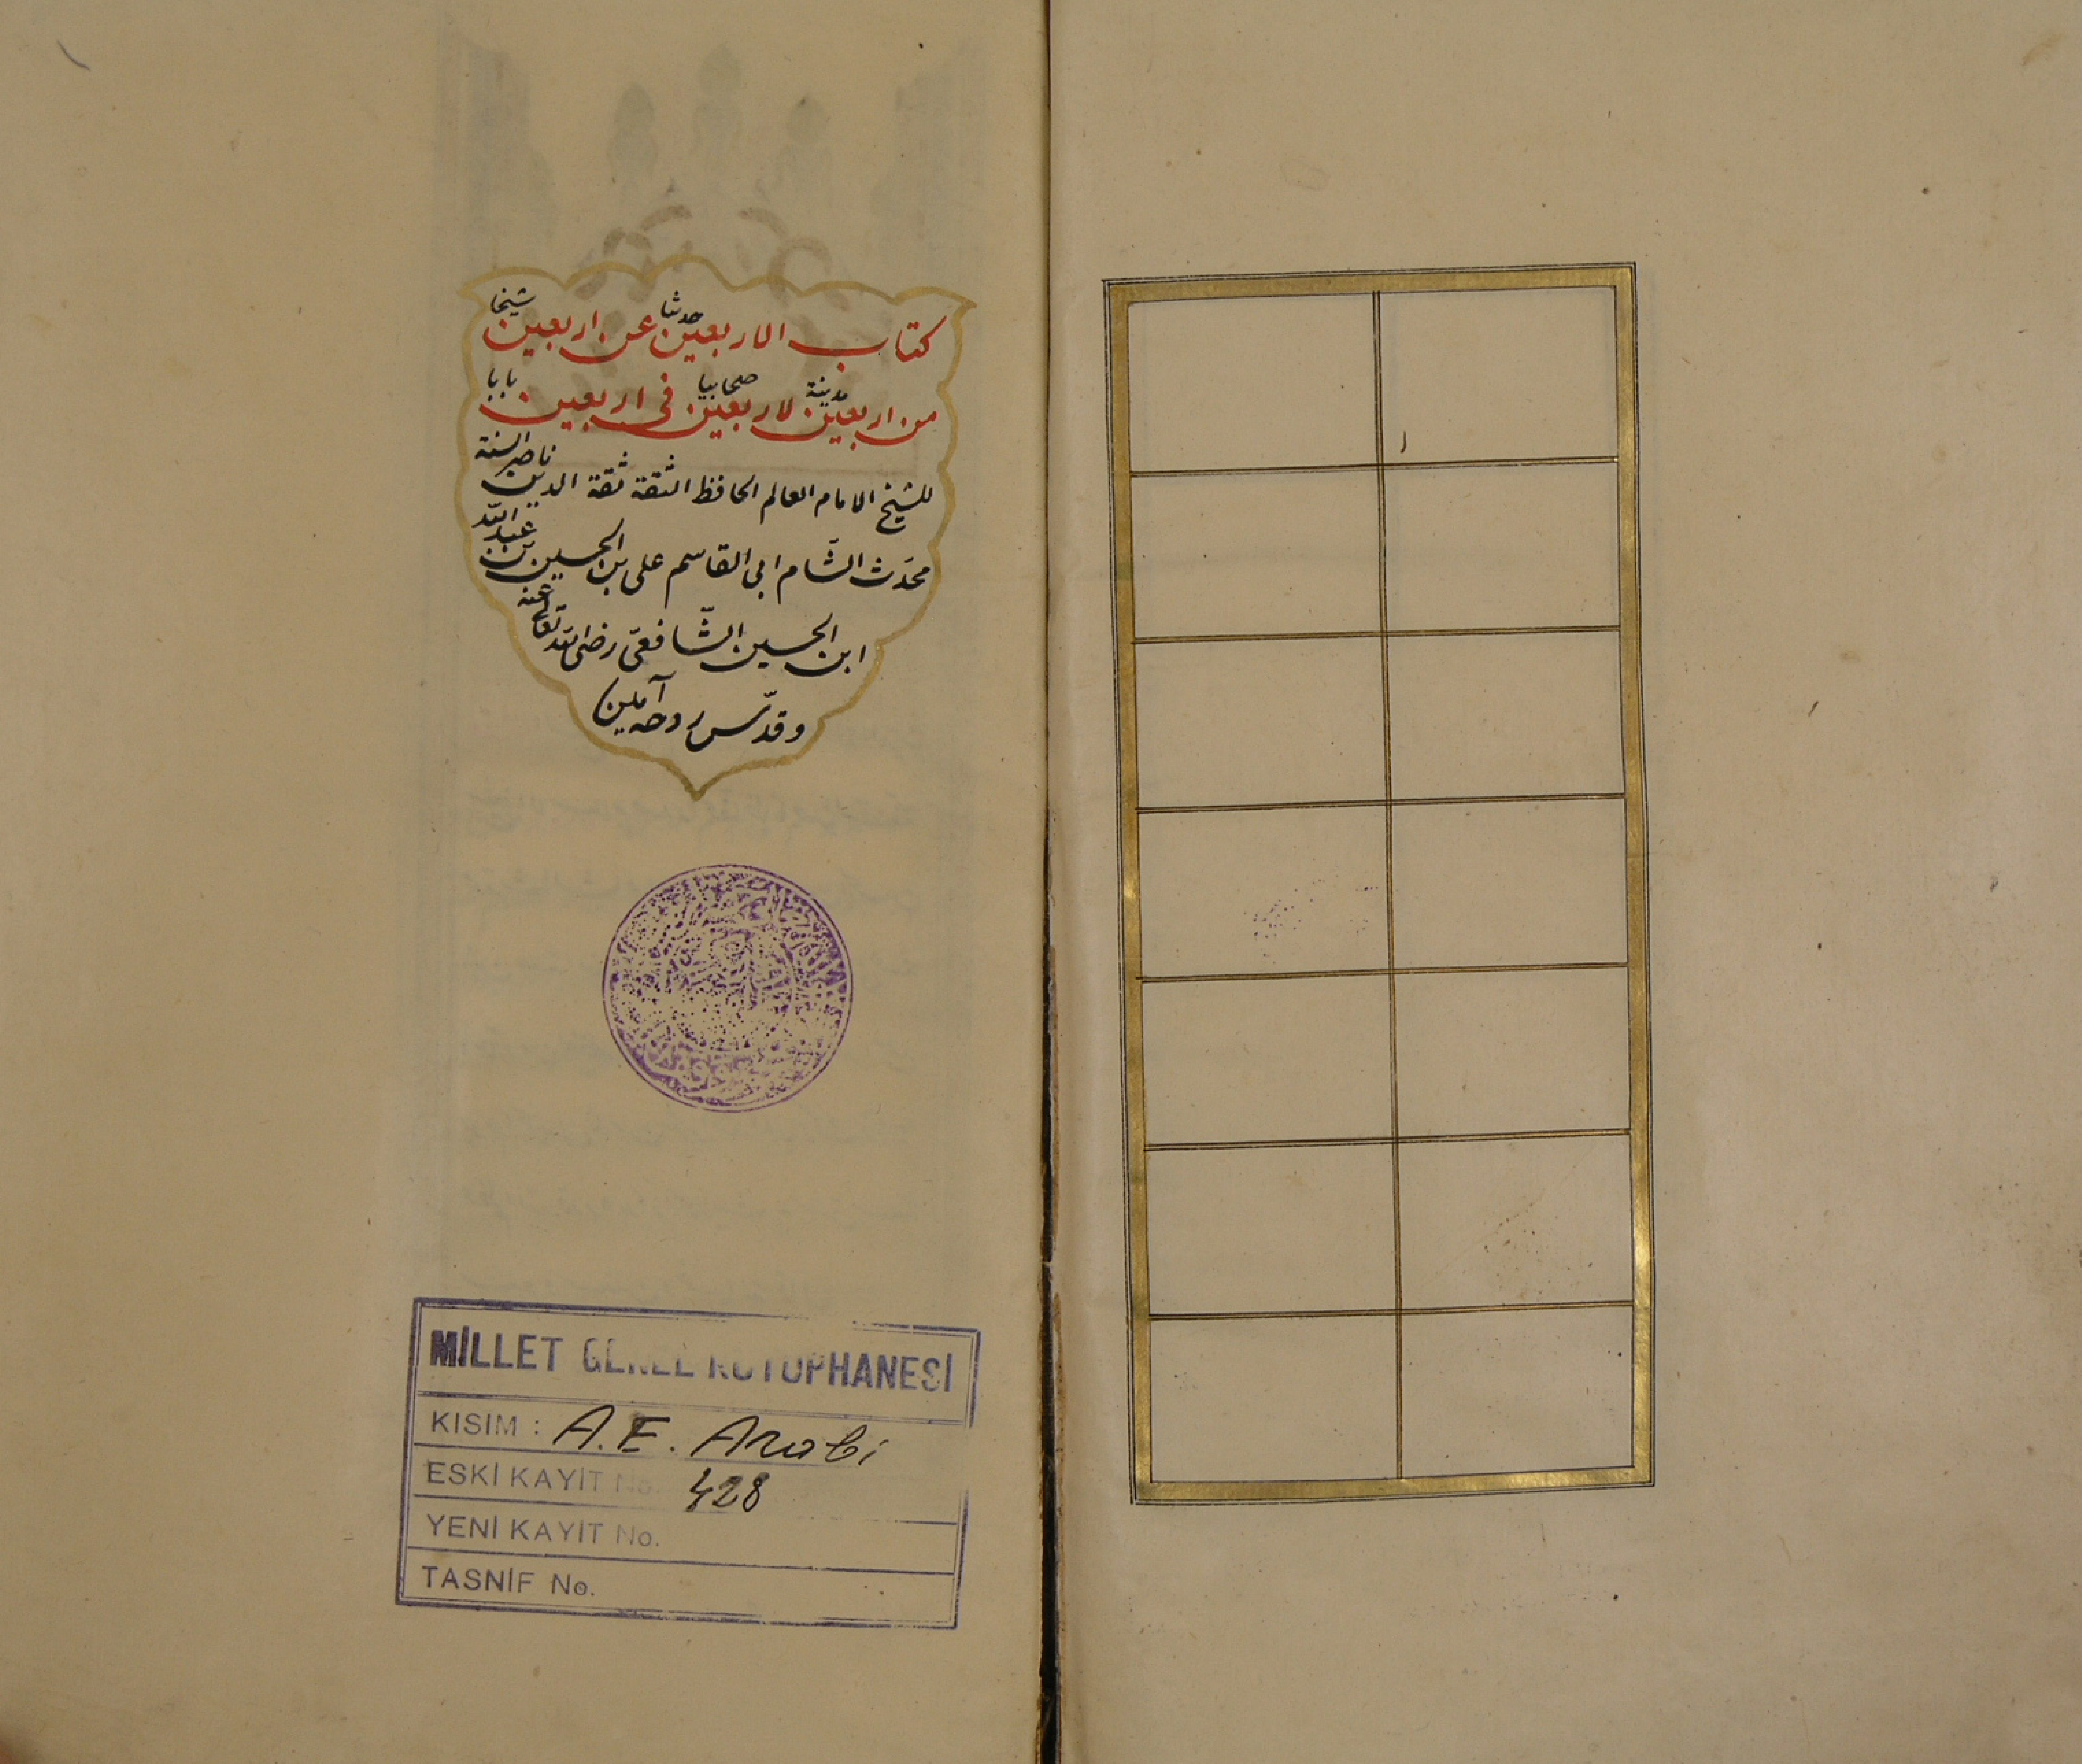 كتاب الاربعين حدثنا عن اربعين شيخا
من اربعين مدينة لاربعين صحابيا فى اربعين بابا
للشيخ الامام العالم الحافظ الثقة ثقة الدين ناصر السنة
محدّث الشّام ابى القاسم على بن الحسين بن عبد اللّه
ابن الحسين الشّافعىّ رضى اللّه تعالى عنه
وقدّس روحه آمين
MİLLET GENEL KÜTÜPHANESİ
KISIM : A.E. Arabi
ESKİ KAYİT No. 428
YENİ KAYİT No.
TASNİF No.